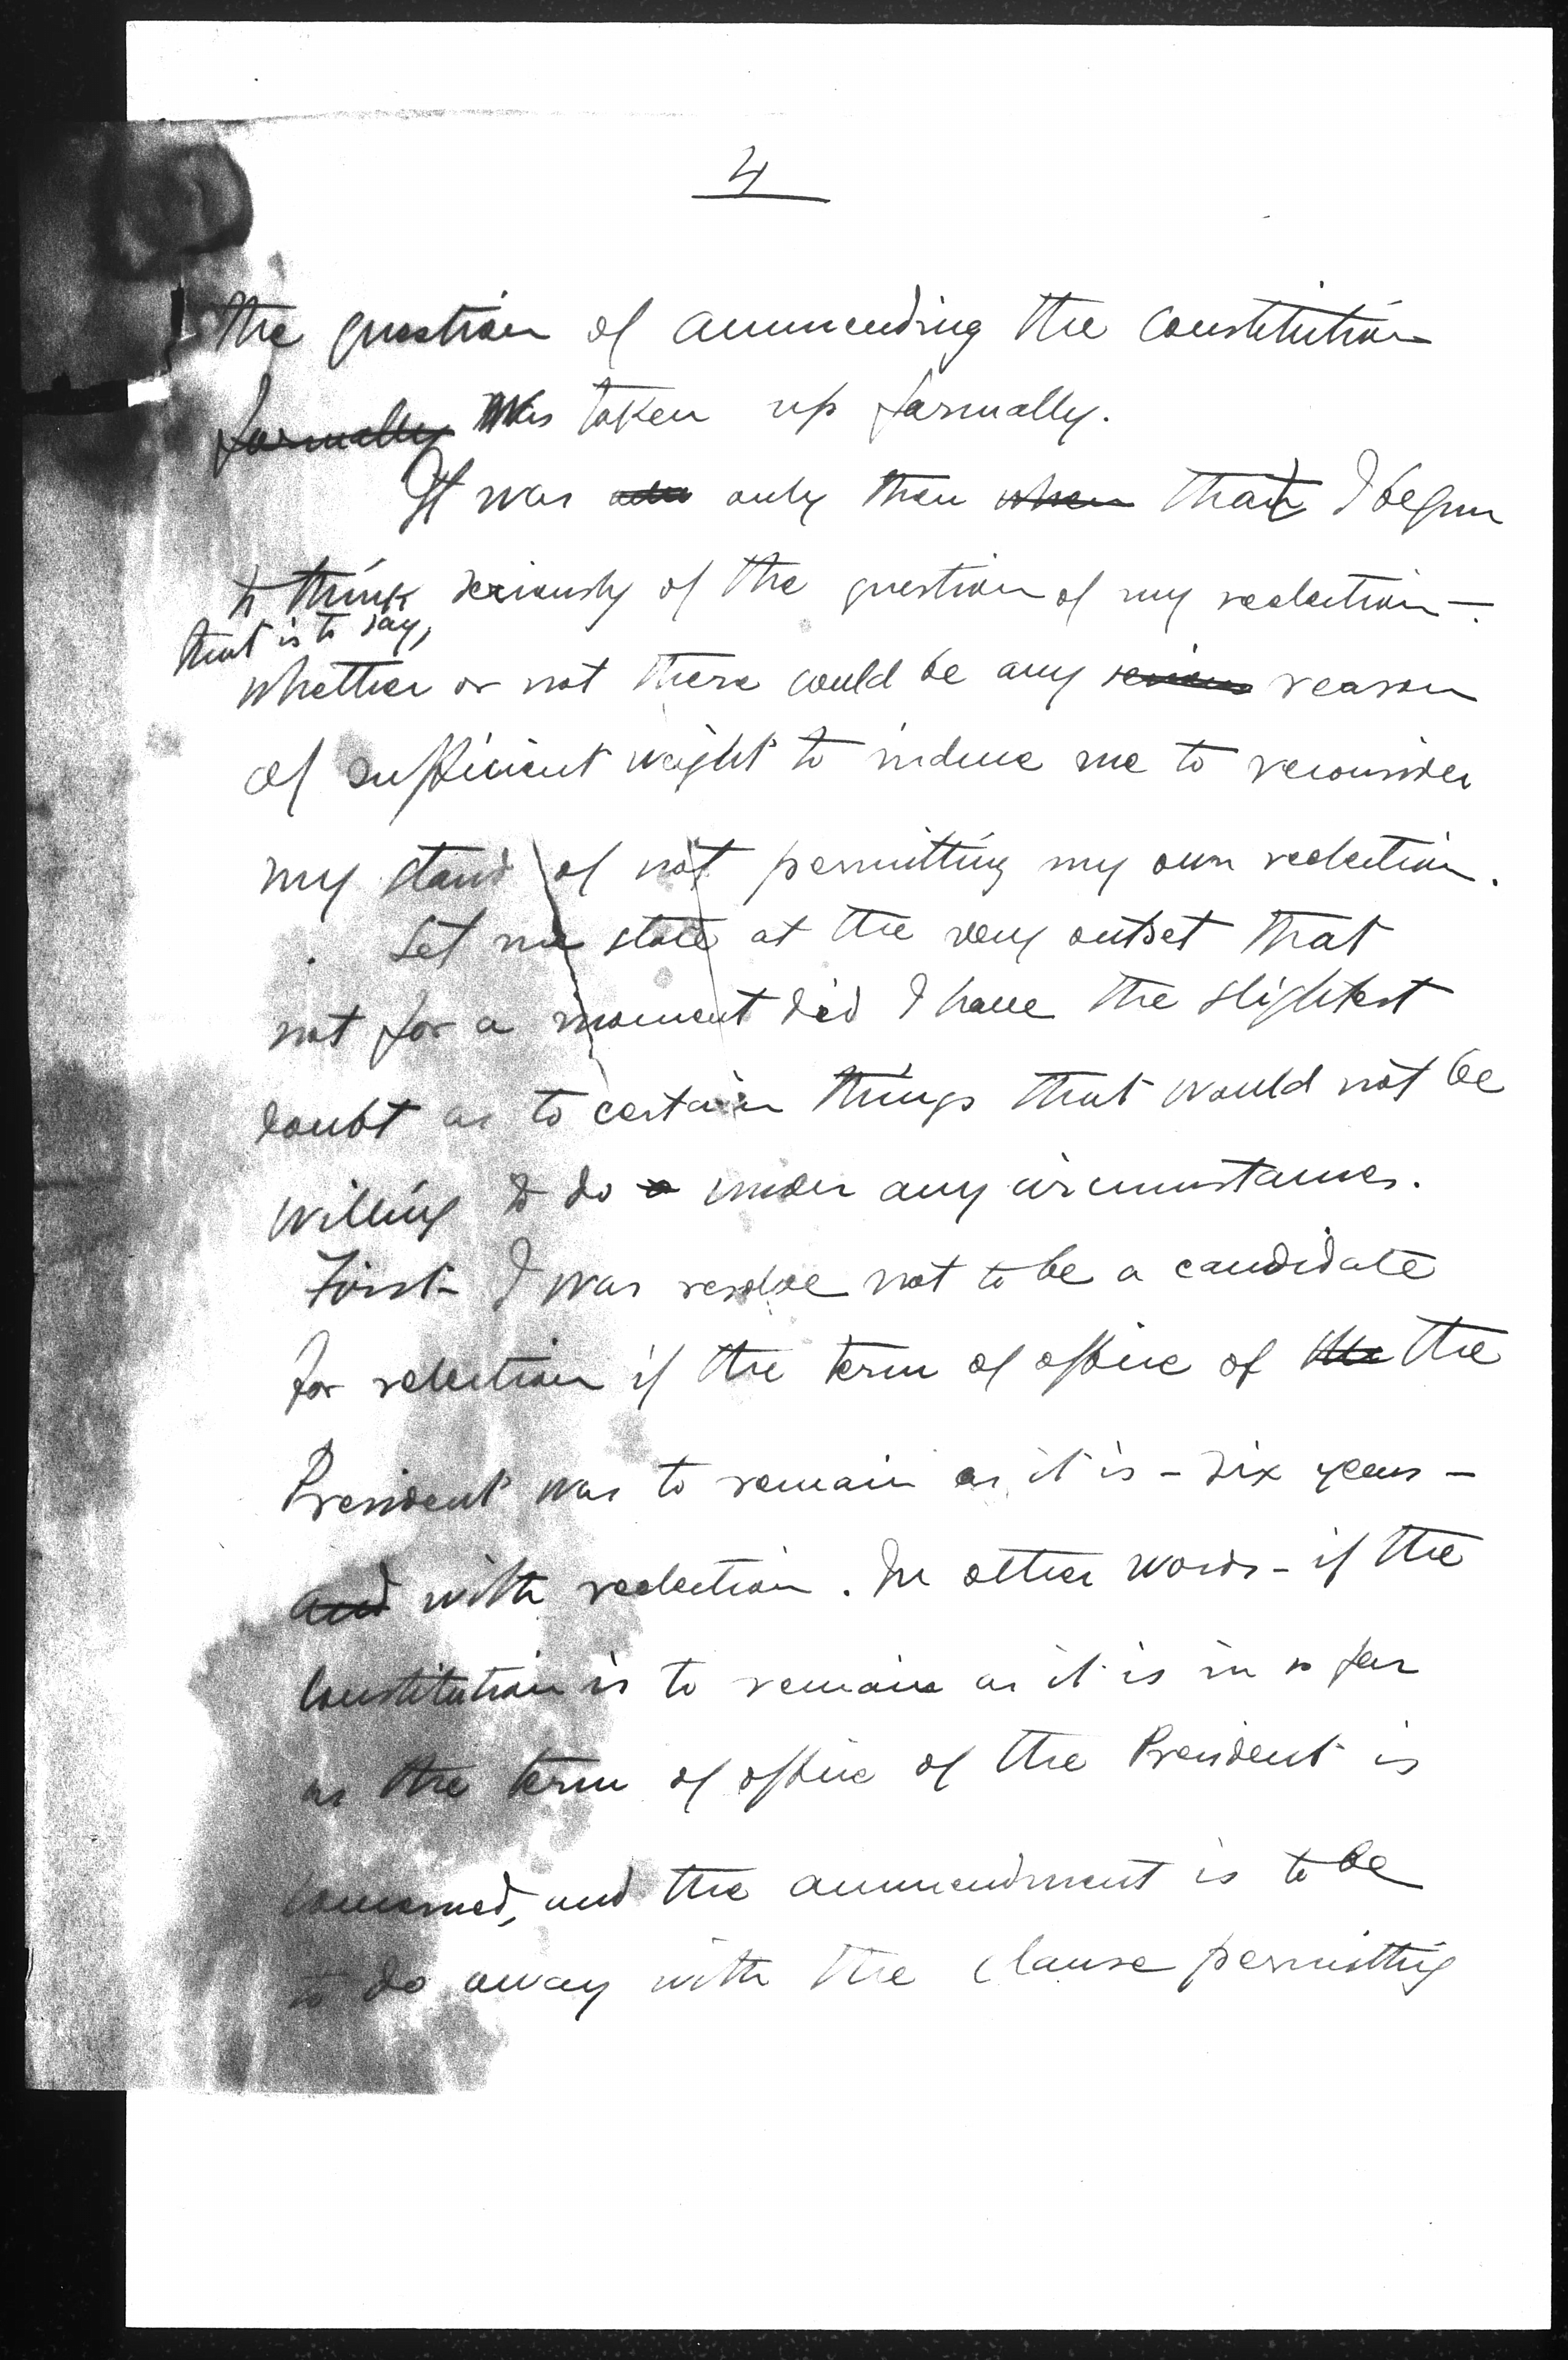 4
the question of ammending the Constitution
formally was taken up formally.
It was only then when that I begun
to think seriously of the question of my reelection -
that is to say,
whether or not there could be any serious reason
of sufficient weight to induce me to reconsider
my stand of not permitting my own reelection.
Let me state at the very outset that
not for a moment did I have the slightest
doubt as to certain things that would not be
willing to do under any circumstances.
First - I was resolve not to be a candidate
for relection if the term of office of the the
President was to remain as it is - six years -
and with reelection. In other words - if the
Constitution is to remain as it is in so far
as the term of office of the President is
concerned, and the ammendment is to be
to do away with the clause permitting